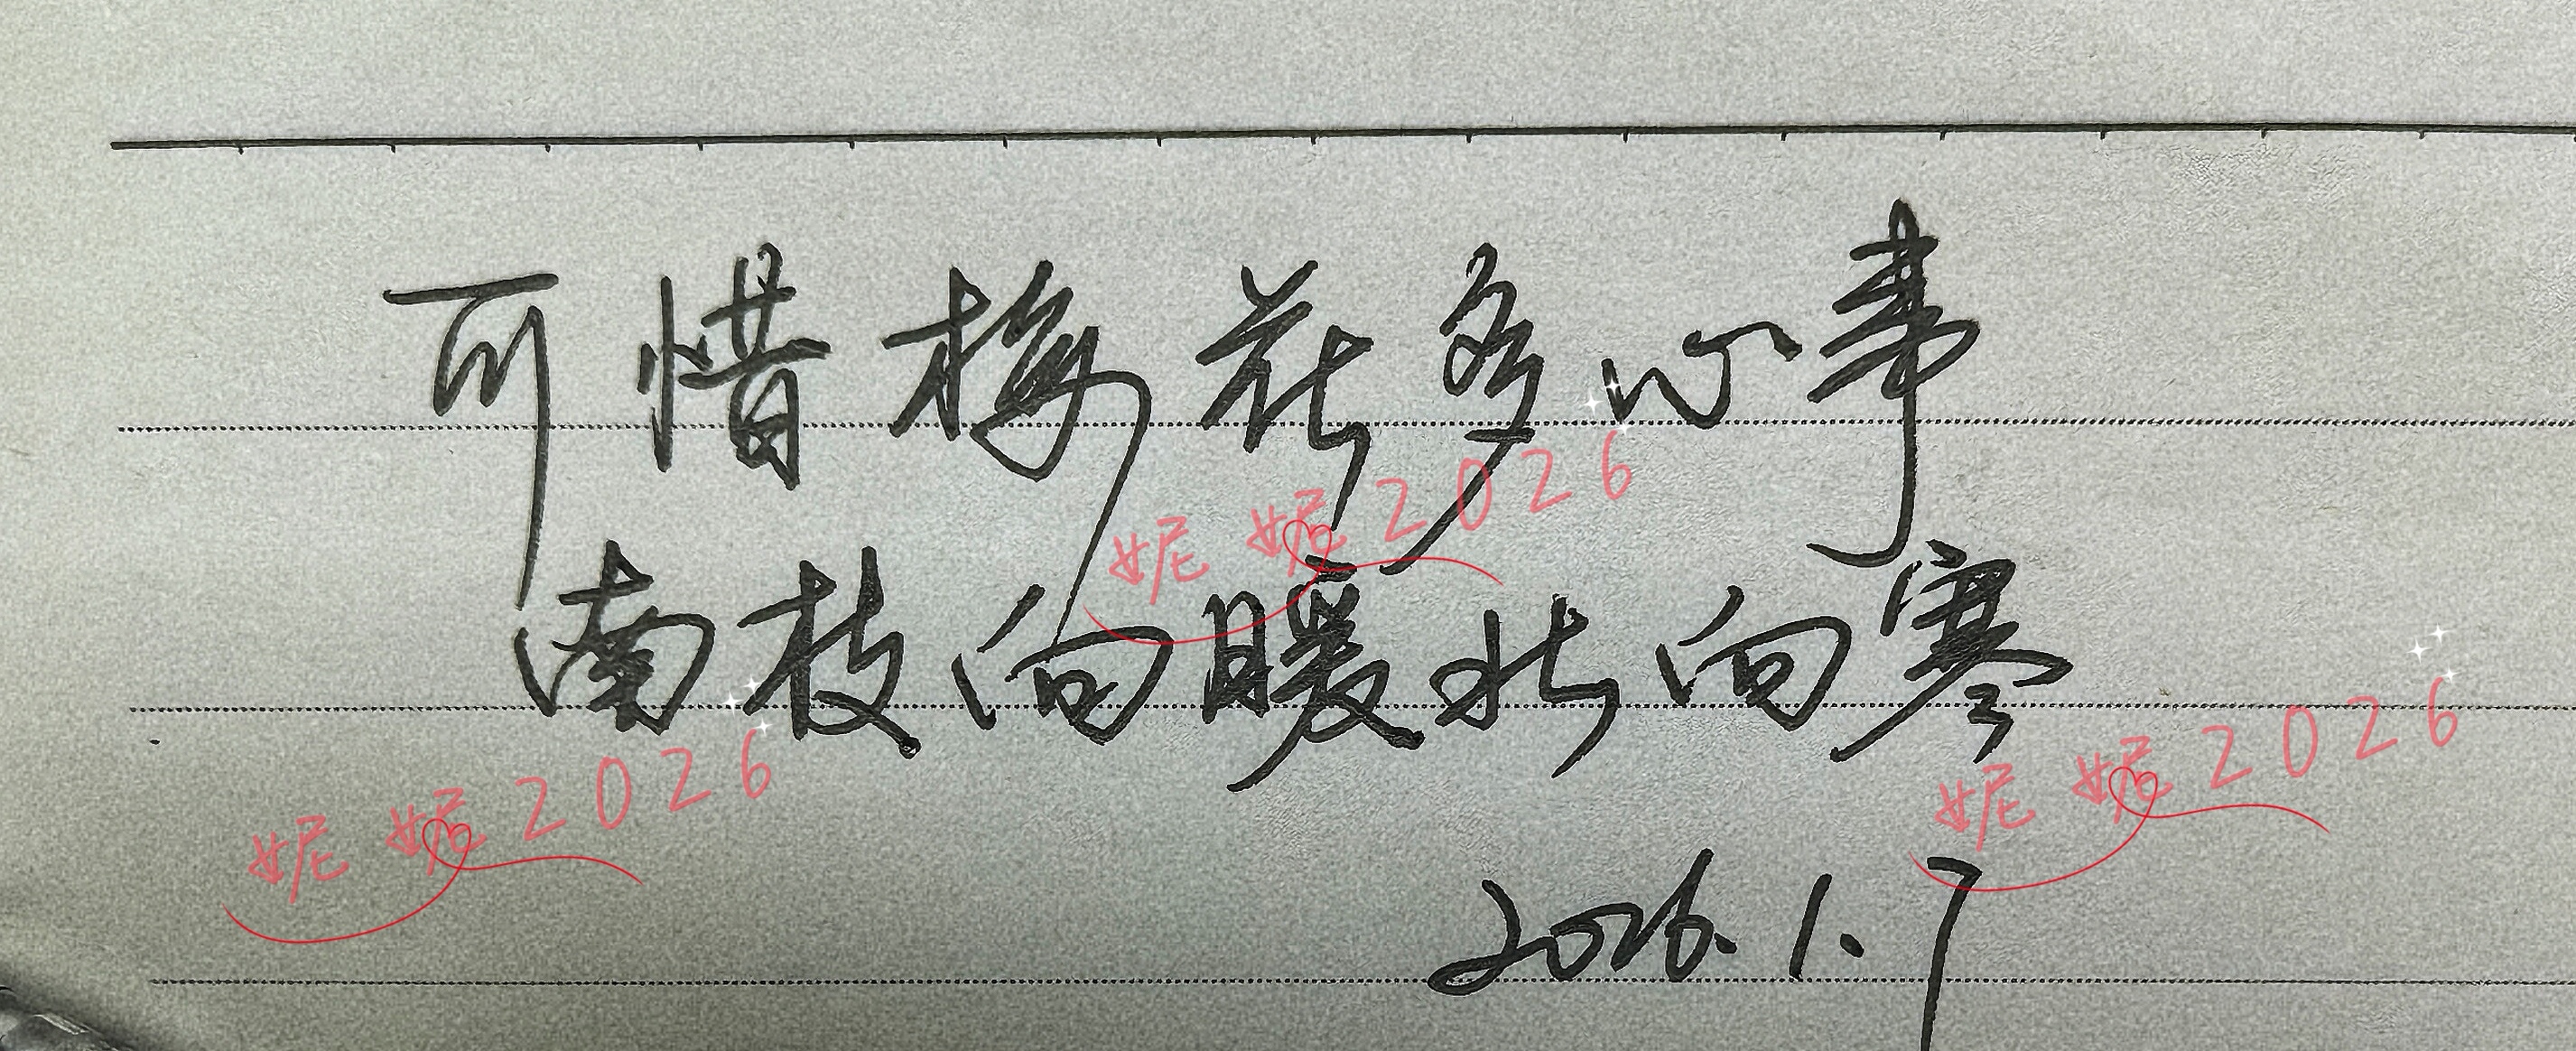 可惜梅花多心事
南枝向暖北向寒
2026.1.7
妮妮2026
妮妮2026
妮妮2026